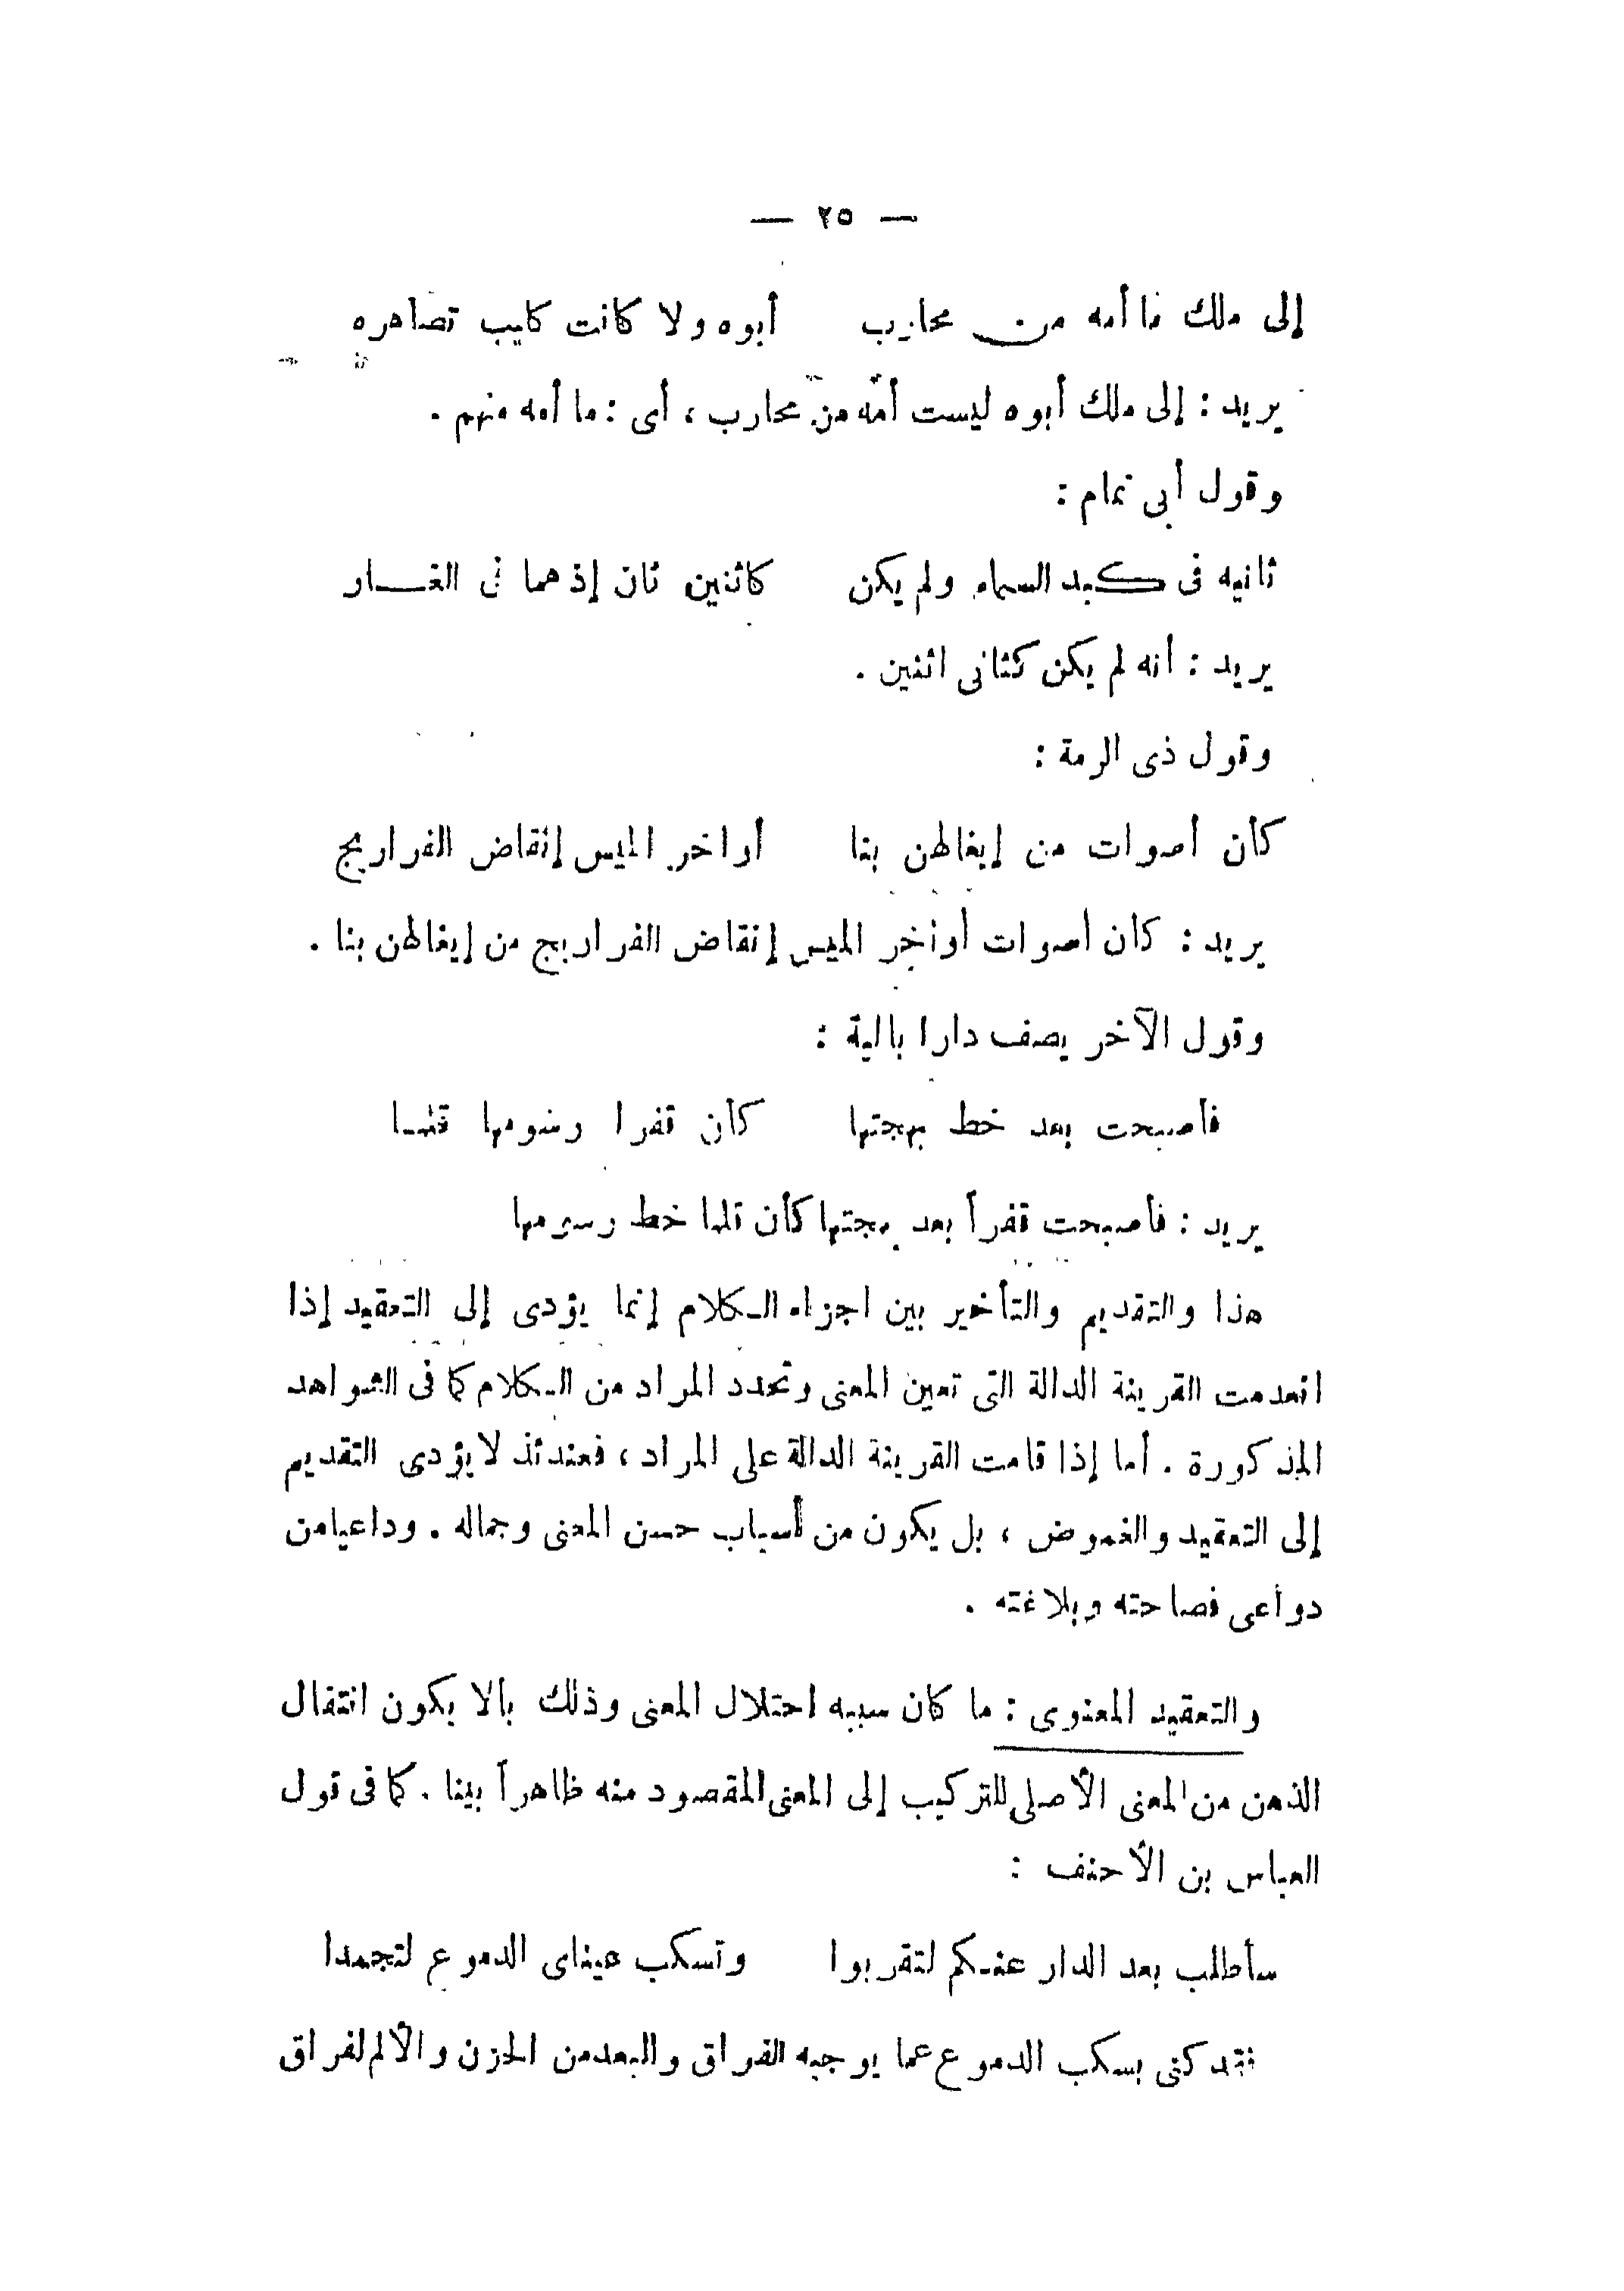 — ٢٥ —
إلى ملك ما أمه من محارب أبوه ولا كانت كليب تصاهره
يريد : إلى ملك أبوه ليست أمه من محارب ، أى : ما أمه منهم .
وقول أبى تمام :
ثانيه فى كبد السماء ولم يكن كاثنين ثان إذ هما فى الغار
يريد : أنه لم يكن كثانى اثنين .
وقول ذى الرمة :
كأن أصوات من إيغالهن بنا أواخر الميس إنقاض الفراريج
يريد : كأن أصوات أواخر الميس إنقاض الفراريج من إيغالهن بنا .
وقول الآخر يصف دارا بالية :
فأصبحت بعد خط بهجتها كأن قفرا رسومها قلما
يريد : فأصبحت قفراً بعد بهجتها كأن قلما خط رسومها
هذا والتقديم والتأخير بين اجزاء الكلام إنما يؤدى إلى التعقيد إذا
انعدمت القرينة الدالة التى تعين المعنى وتحدد المراد من الكلام كما فى الشواهد
المذكورة . أما إذا قامت القرينة الدالة على المراد ، فعندئذ لا يؤدى التقديم
إلى التعقيد والغموض ، بل يكون من أسباب حسن المعنى وجماله . وداعيا من
دواعى فصاحته وبلاغته .
والتعقيد المعنوى : ما كان سببه اختلال المعنى وذلك بألا يكون انتقال
الذهن من المعنى الأصلى للتركيب إلى المعنى المقصود منه ظاهراً بينا . كما فى قول
العباس بن الأحنف :
سأطلب بعد الدار عنكم لتقربوا وتسكب عيناى الدموع لتجمدا
فقد كنى بسكب الدموع عما يوجبه الفراق والبعد من الحزن والألم لفراق